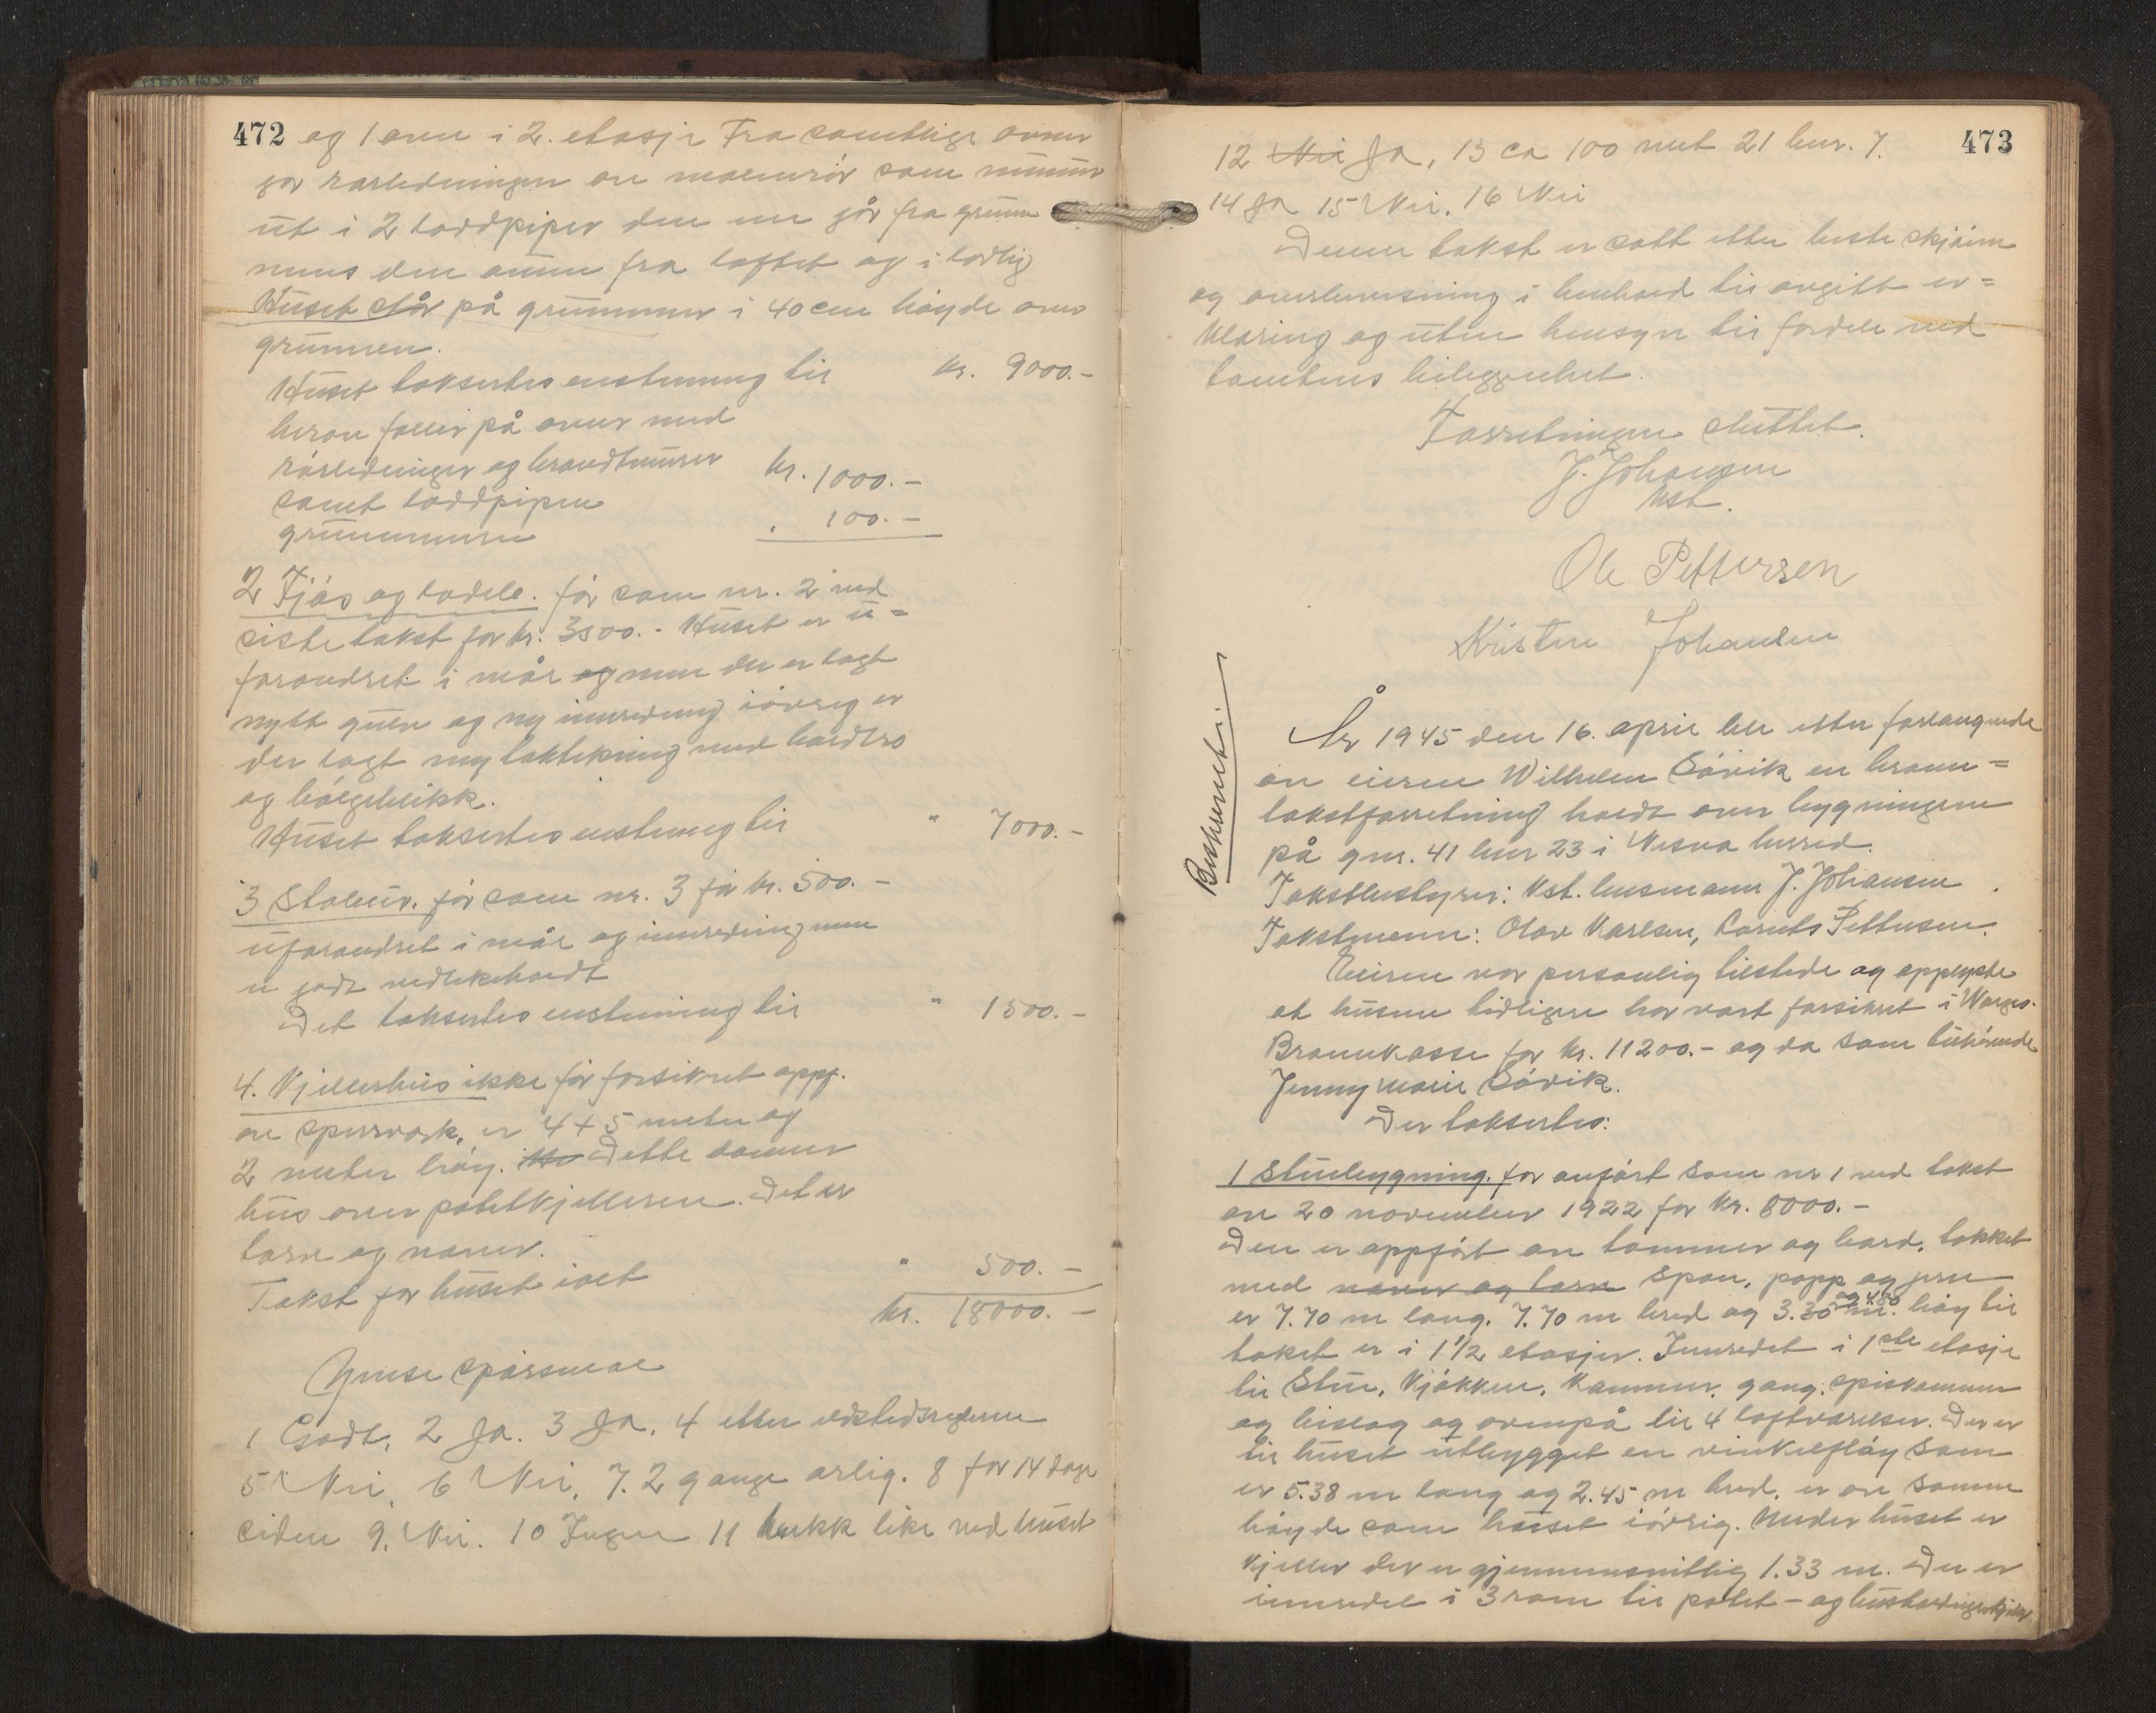 472 og 1 ovn i 2. etasje Fra samtlige ovner
går rørledningen av malmrör som munner
ut i 2 loddpiper den ene går fra grunn
muns den annen fra loftet og i lodlig
Huset står på grunnmur i 40 cm höyde over
grunnen.
Huset taksertes enstemmig til kr. 9000.-
herav faller på ovner med
rörledninger og brandmurer
samt loddpipen kr. 1000.-
grunnmuren " 100.-
2 Fjös og lade. för som nr. 2 ved
siste takst for kr. 3500.- Huset er u=
forandret i mål og men der er lagt
nytt gulv og ny innredning iövrig er
der lagt ny taktekning med bordtro
og bölgeblikk.
Huset taksertes enstemmig til " 7000.-
3 Stabur. för som nr. 3 for kr. 500.-
uforandret i mål og innredning men
er godt vedlikeholdt
Det taksertes enstemmig til " 1500.-
4. Kjellerhus ikke för forsikret oppf.
av sperrverk, er 4 + 5 meter og
2 meter höy. Dette danner
hus over potetkjelleren. Det er
torv og never.
Takst for huset ialt " 500.-
kr. 18000.-
Ymse spörsmål
1 Godt, 2 Ja. 3 Ja, 4 etter ildstedsreglerne
5 Nei, 6 Nei, 7. 2 gange årlig. 8 for 14 dage
siden 9. Nei. 10 Ingen 11 bekk like ved huset
473
12 Nei Ja, 13 ca 100 met 21 bnr. 7.
14 Ja 15 Nei. 16 Nei
Denne takst er satt etter beste skjönn
og overbevisning i henhold til avgitt er=
klæring og uten hensyn til fordele ved
tomtens beliggenhet.
Forretningen sluttet.
J. Johansen
kst.
Ole Pettersen
Kristen Johansen
Beskrevet:
År 1945 den 16. april ble etter forlangende
av eieren Wilhelm Sövik en brann=
takstforretning holdt over bygningene
på gnr. 41 bnr 23 i Nesna herred.
Takstbestyrer: Kst. lensmann J. Johansen
Takstmenn: Olav Karlsen, Pettersen.
Eieren var personlig tilstede og opplyste
at husene tidligere har vært forsikret i Norges
Brannkasse for kr. 11200.- og da som tilhörende
Jenny Marie Sövik.
Der taksertes:
1 Stuebygning. för anfört som nr 1 ved takst
av 20 november 1922 for kr. 8000.-
Den er oppfört av tømmer og bord, tekket
med never og torv spon, papp og jern
er 7.70 m lang. 7.70 m bred og 3.30 og 4.50 m. höy til
taket er i 1 1/2 etasjer. Innredet i 1ste etasje
til Stue, Kjökken, Kammer, gang, spiskammer
og bislag og ovenpå til 4 loftværelser. Der er
til huset utbygget en vinkelflöy som
er 5.38 m lang og 2.45 m bred. er av samme
höyde som huset iövrig. Under huset er
kjeller der er gjennemsnittlig 1.33 m. Den er
innredet i 3 rom til potet- og husholdningskjeller